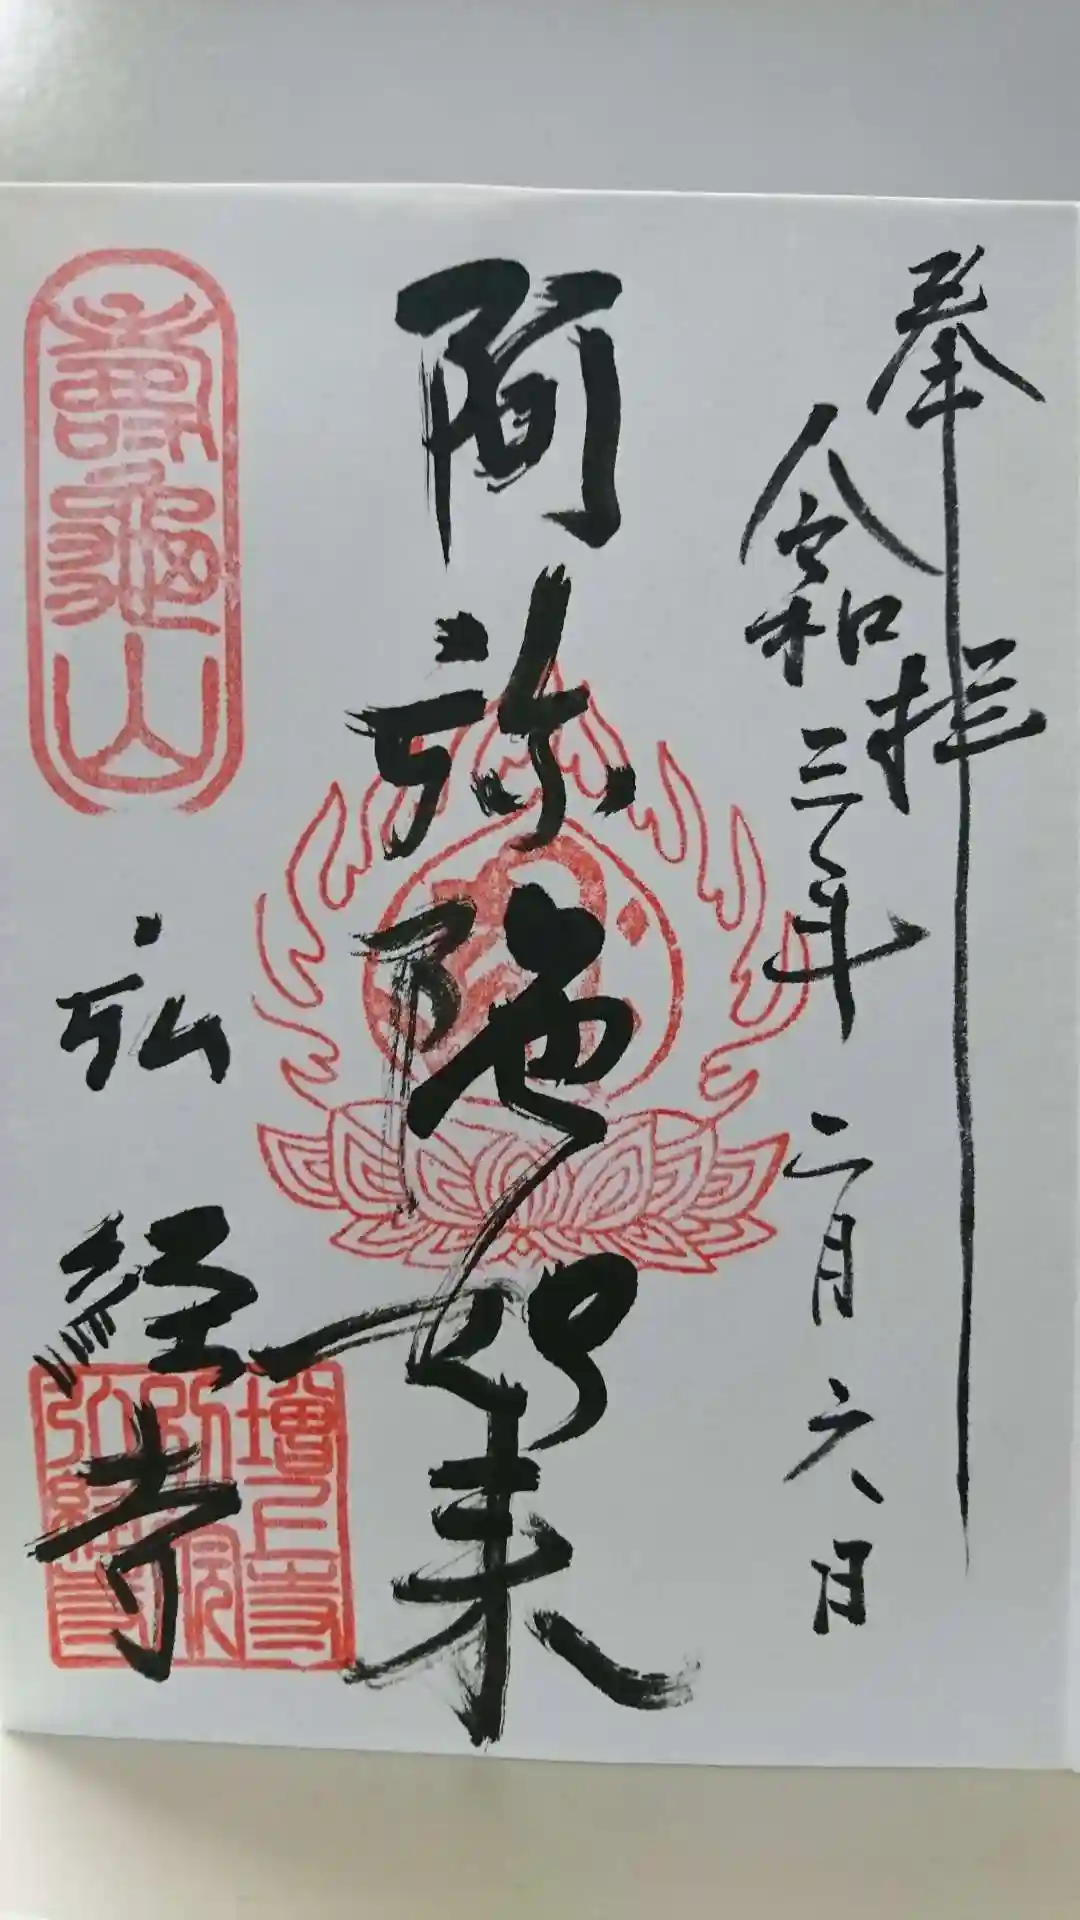 奉拝
令和三年二月六日
阿弥陀如来
壽龜山
弘経寺
増上寺
別院
弘経寺